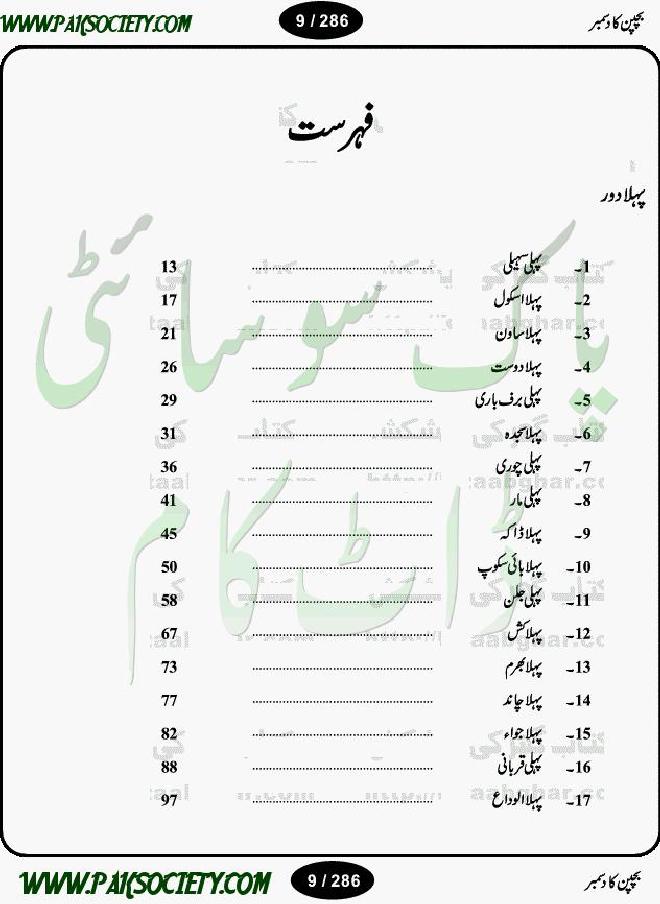 WWW.PAKSOCIETY.COM 9 / 286 بچپن کا دسمبر
فہرست
پہلا دور
1۔ پہلی سہیلی ........ 13
2۔ پہلا اسکول ........ 17
3۔ پہلا ساون ........ 21
4۔ پہلا دوست ........ 26
5۔ پہلی برف باری ........ 29
6۔ پہلا سجدہ ........ 31
7۔ پہلی چوری ........ 36
8۔ پہلی مار ........ 41
9۔ پہلا ڈاکہ ........ 45
10۔ پہلا بائی سکوپ ........ 50
11۔ پہلی جلن ........ 58
12۔ پہلا کش ........ 67
13۔ پہلا بھرم ........ 73
14۔ پہلا چاند ........ 77
15۔ پہلا جواء ........ 82
16۔ پہلی قربانی ........ 88
17۔ پہلا الوداع ........ 97
پاک سوسائٹی
ڈاٹ کام
WWW.PAKSOCIETY.COM 9 / 286 بچپن کا دسمبر